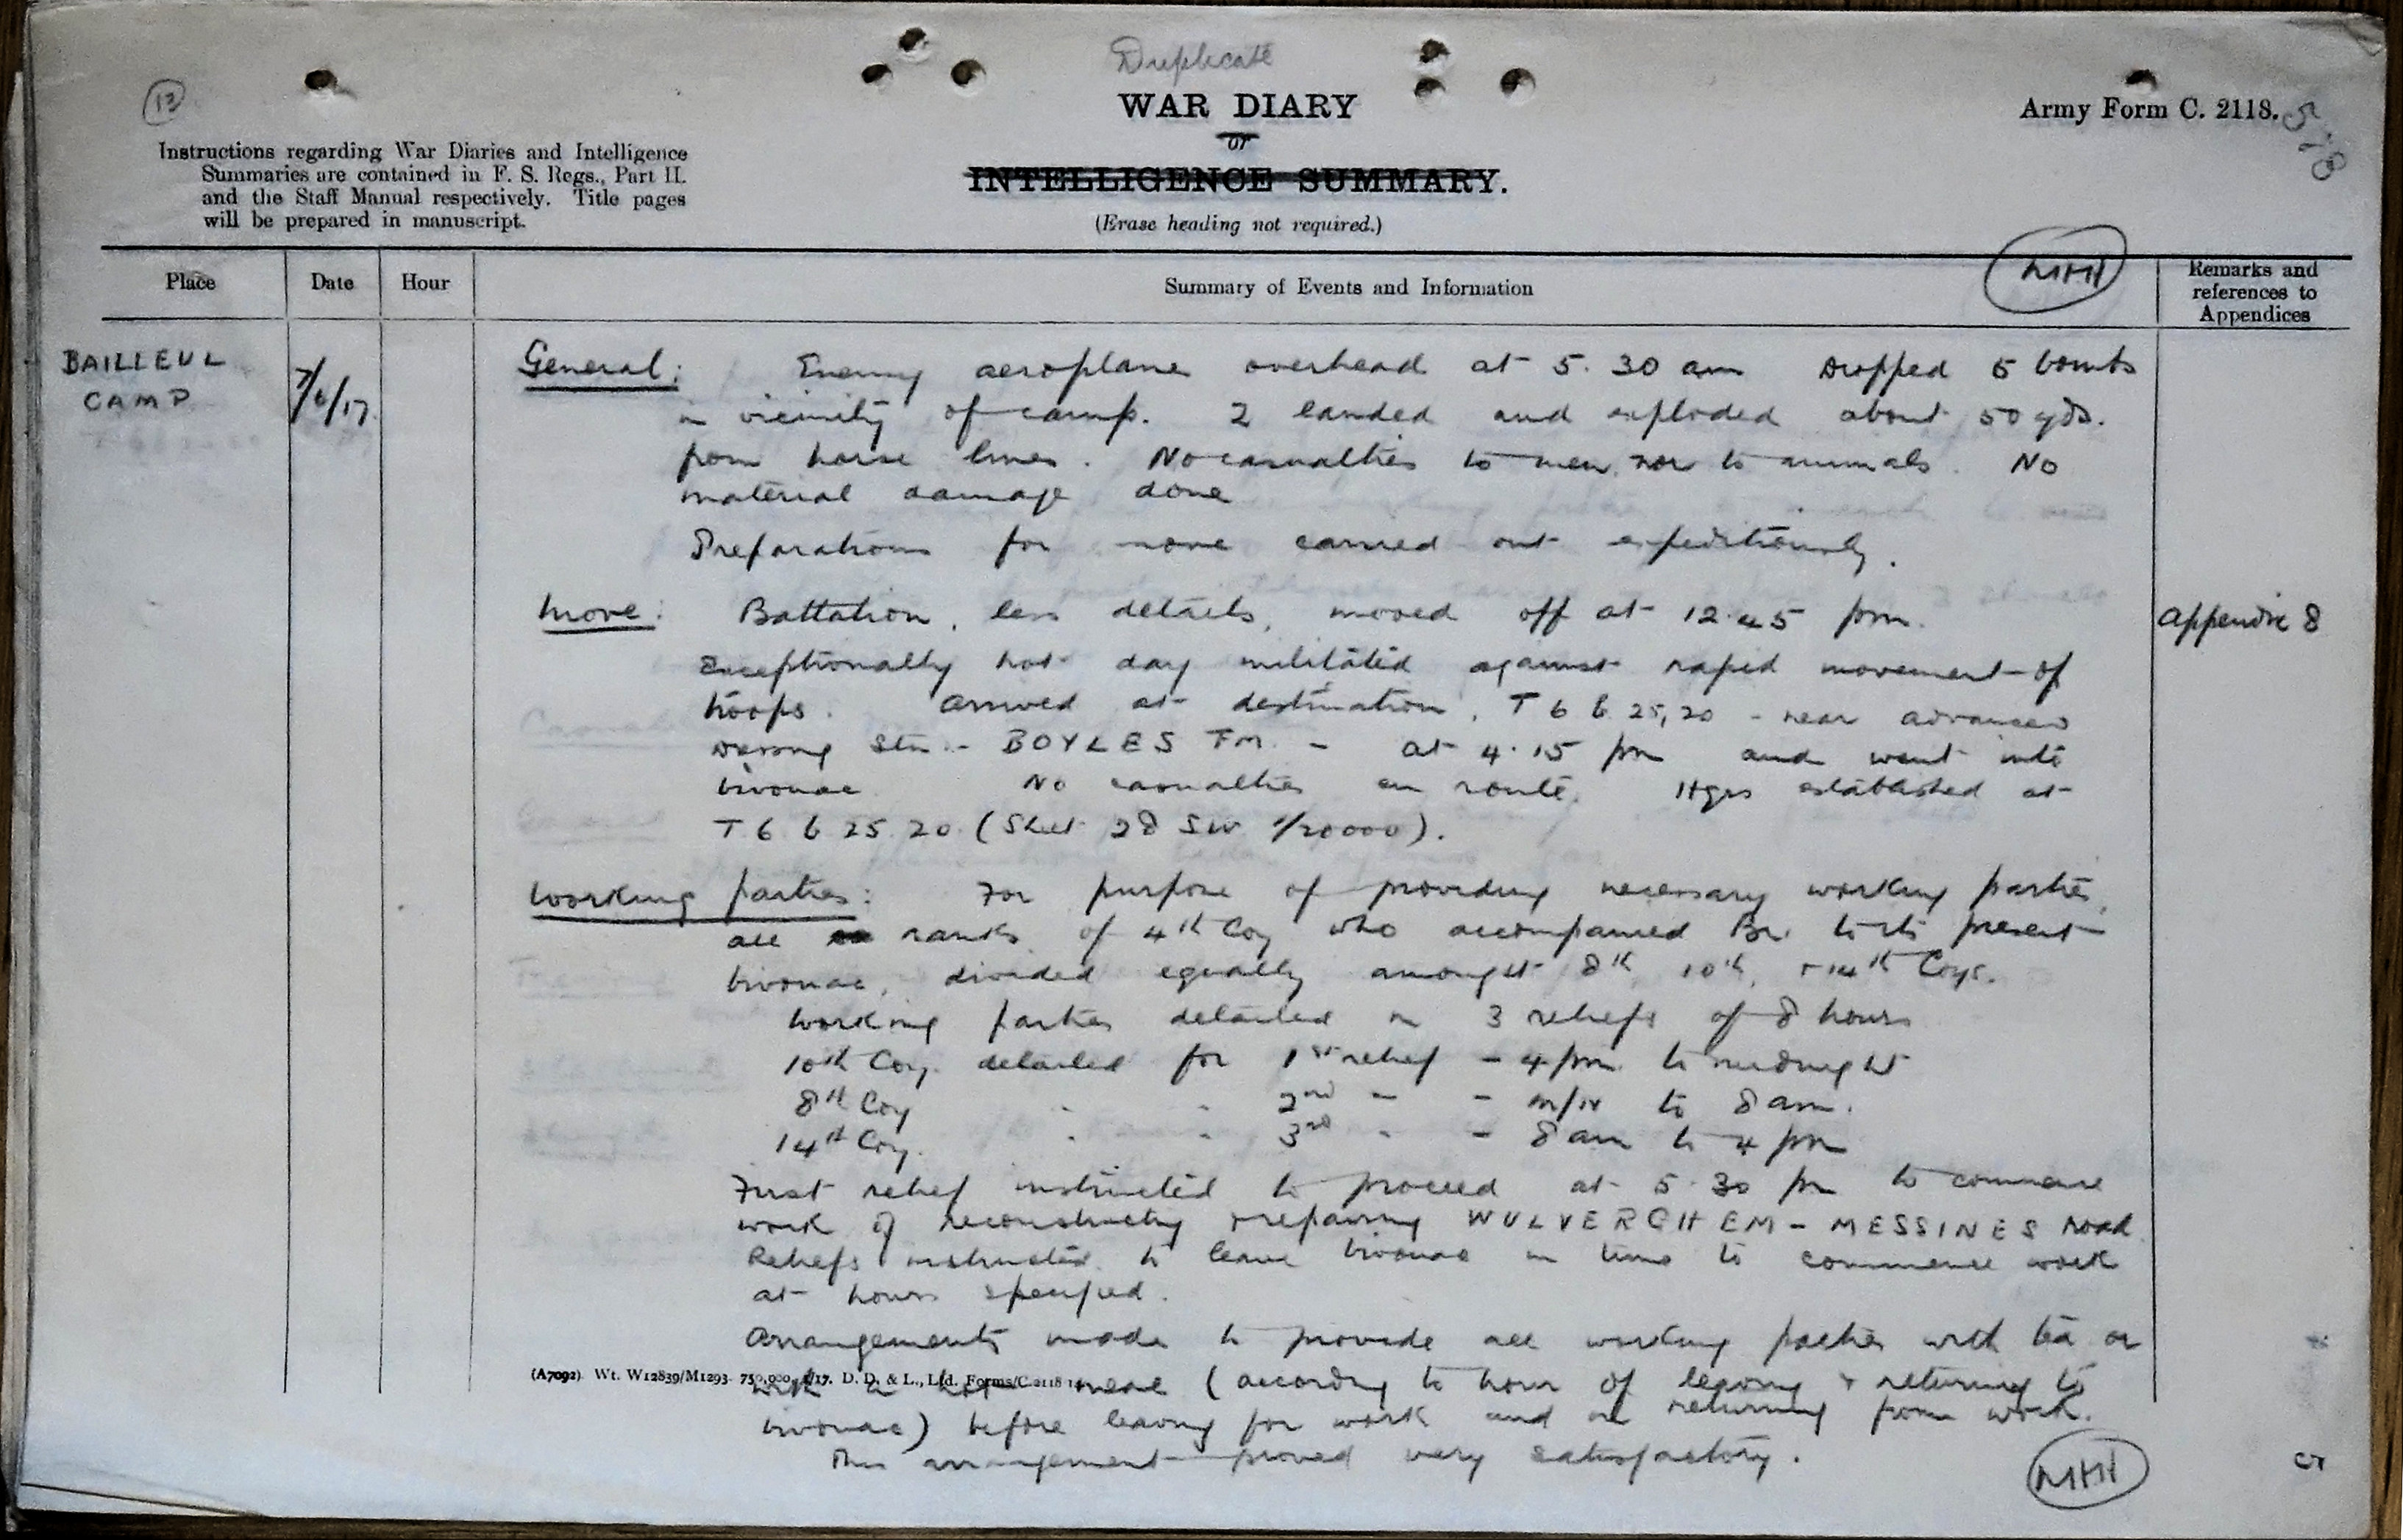 Duplicate
13
WAR DIARY
or
INTELLIGENCE SUMMARY.
(Erase heading not required.)
Army Form C. 2118.
Instructions regarding War Diaries and Intelligence
Summaries are contained in F. S. Regs., Part II.
and the Staff Manual respectively. Title pages
will be prepared in manuscript.
Place
Date
Hour
Summary of Events and Information
Remarks and
references to
Appendices
BAILLEUL
CAMP
7/6/17.
General: Enemy aeroplane overhead at 5.30 am Dropped 5 bombs
in vicinity of camp. 2 landed and exploded about 50 yds.
from horse lines. No casualties to men nor to animals. No
material damage done
Preparations for move carried out expeditiously.
Move: Battalion, less details, moved off at 12.45 pm.
Appendix 8
Exceptionally hot day militated against rapid movement of
troops. Arrived at destination, T 6 b 25,20 - near advanced
Dressing Stn. - BOYLES FM. - at 4.15 pm and went into
bivouac No casualties en route. Hqrs established at
T 6 b 25.20. (Sheet 28 SW 1/20000).
Working parties: For purpose of providing necessary working parties,
all ranks of 4th Coy who accompanied Bn. to its present
bivouac, divided equally amongst 8th, 10th, + 14th Coys.
Working parties detailed in 3 reliefs of 8 hours
10th Coy. detailed for 1st relief - 4 pm. to midnight
8th Coy " " 2nd " - m/n to 8 am.
14th Coy. " " 3rd " - 8 am to 4 pm
First relief instructed to proceed at 5.30 pm to commence
work of reconstructing & repairing WULVERGHEM - MESSINES Road.
Reliefs instructed to leave bivouac in time to commence work
at hours specified.
Arrangements made to provide all working parties with tea or
(A7092) Wt. W12839/M1293 750,000. 1/17. D. D. & L., Ltd. Forms/C.2118
with a hot meal (according to hour of leaving & returning to
bivouac) before leaving for work and on returning from work.
This arrangement proved very satisfactory.